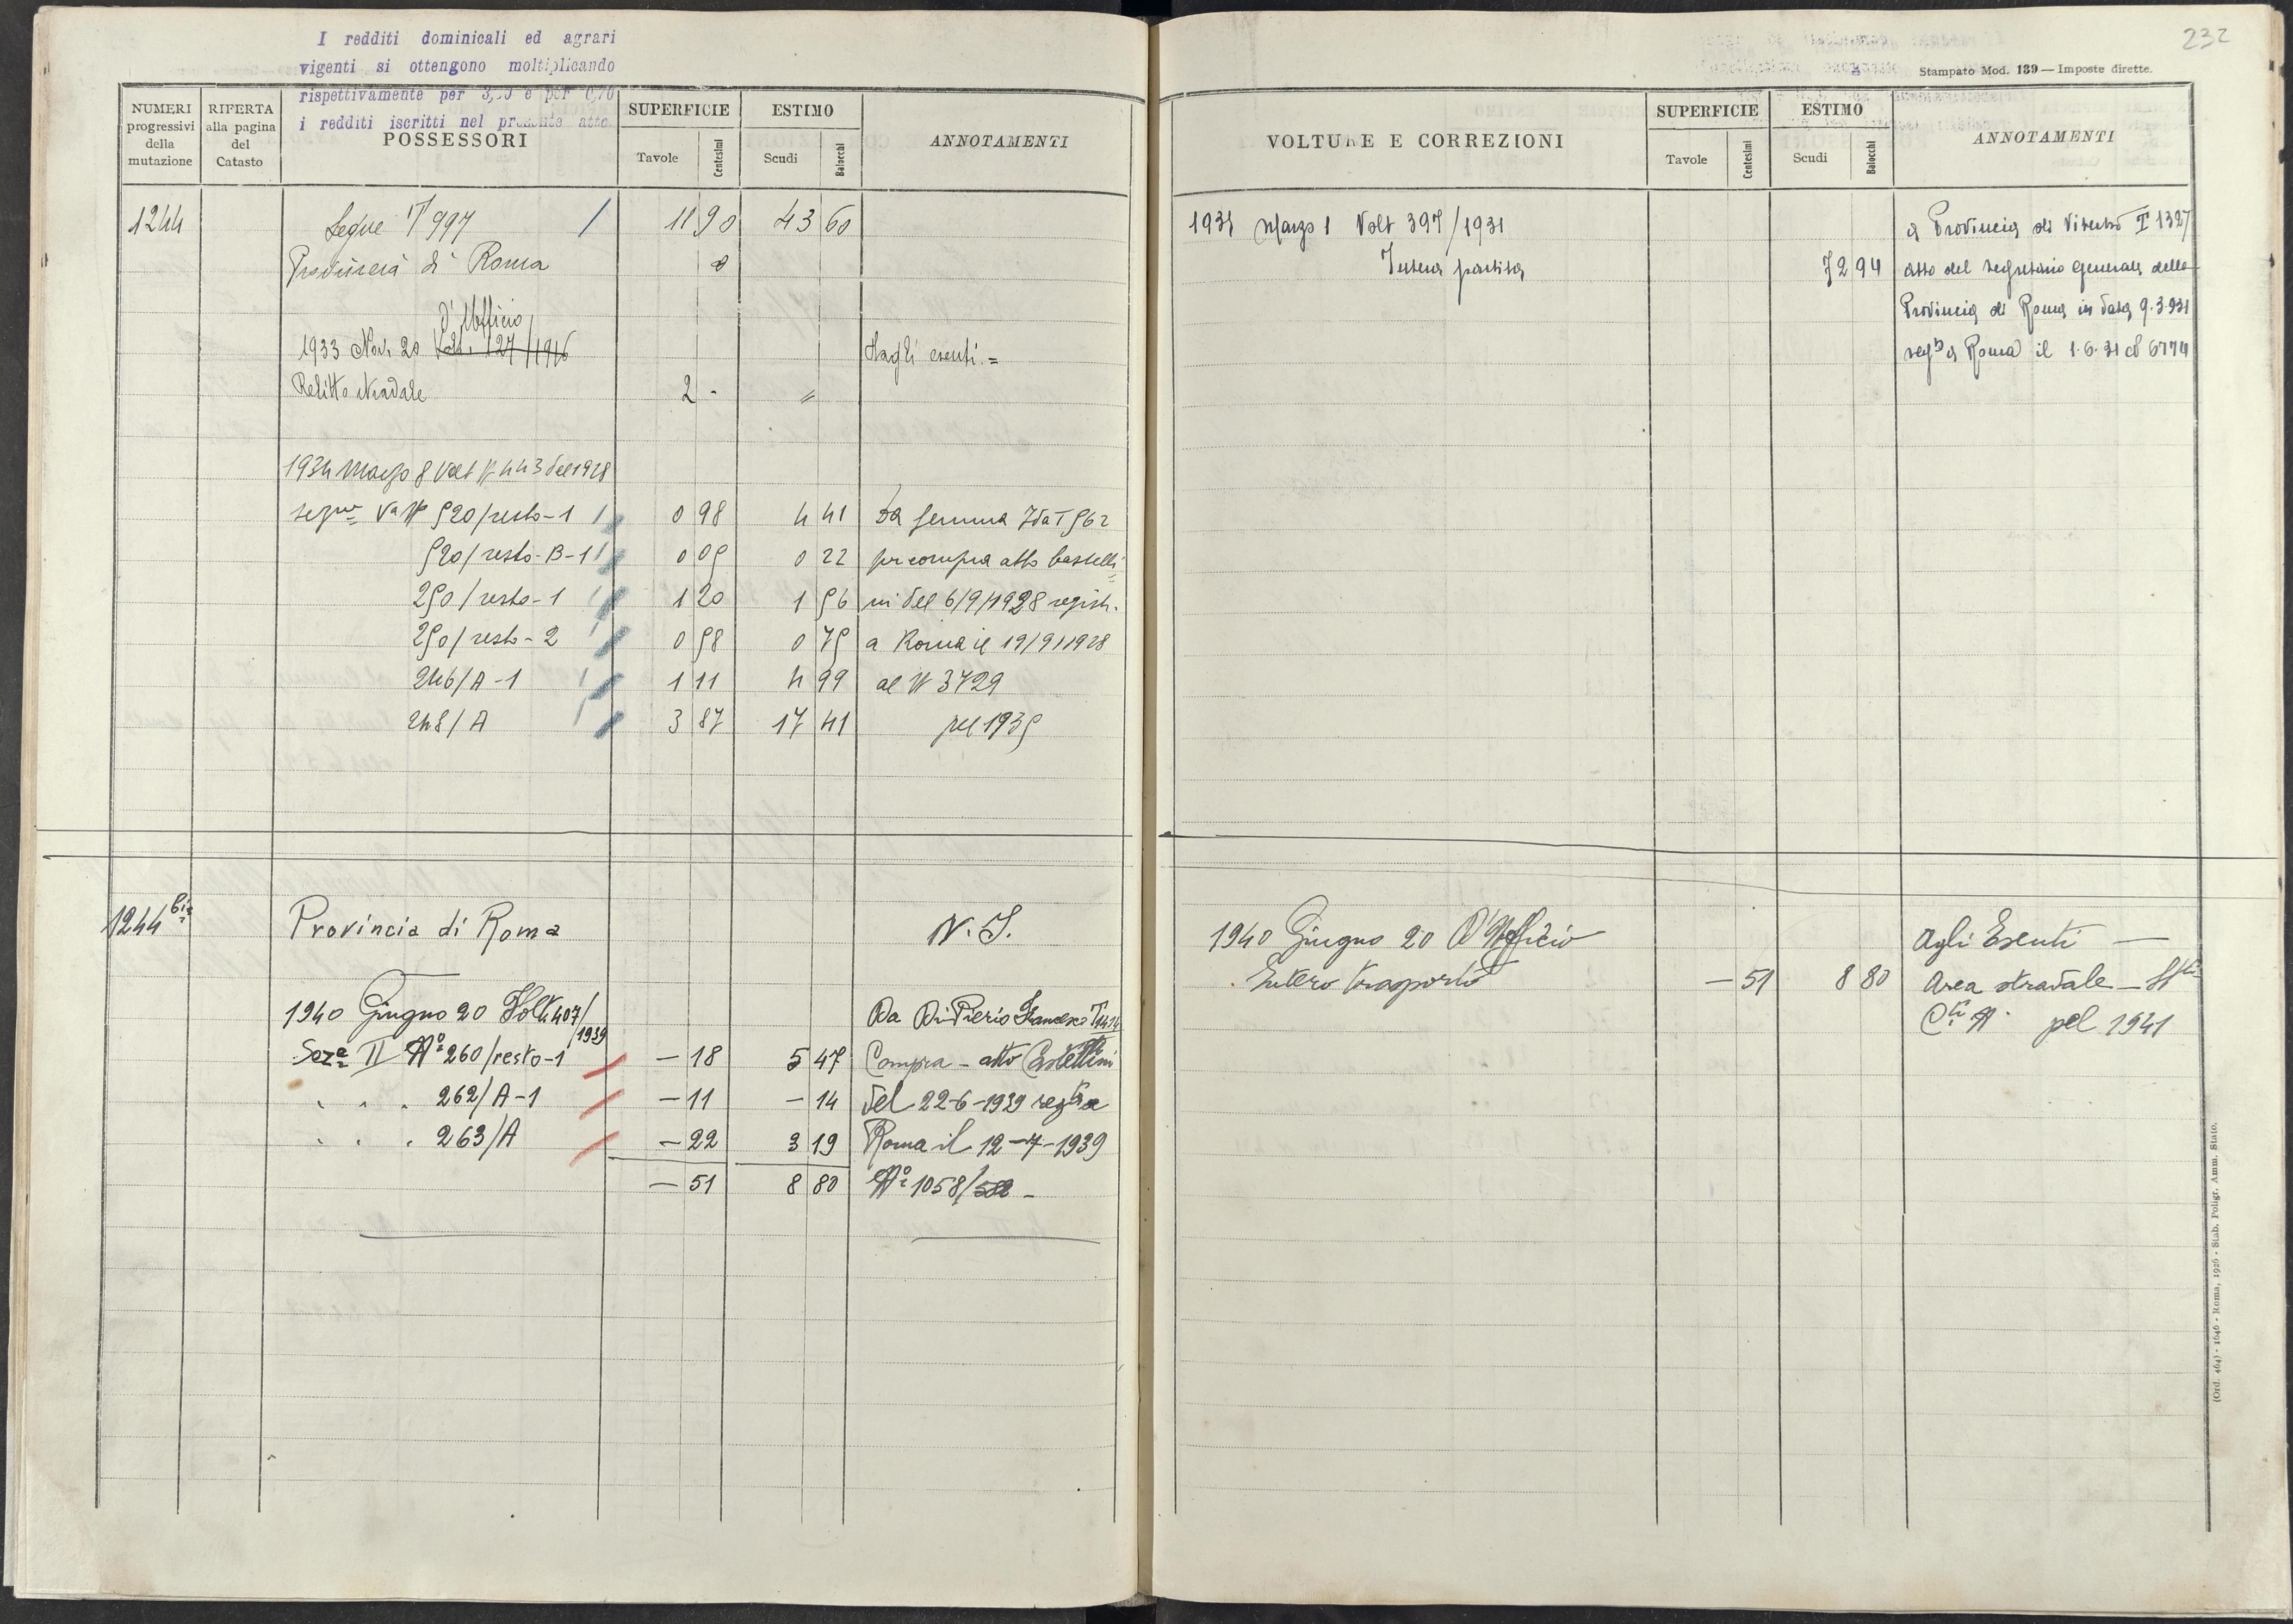 I redditi dominicali ed agrari
vigenti si ottengono moltiplicando
rispettivamente per e per 0,70
i redditi iscritti nel presente atto
NUMERI progressivi della mutazione
RIFERTA alla pagina del Catasto
POSSESSORI
SUPERFICIE
Tavole Centesimi
ESTIMO
Scudi Baiocchi
ANNOTAMENTI
1244 Segue T/997 / 11 90 43 60
Provincia di Roma
d'Ufficio
1933 Nov. 20 Volt. 127/1916 Dagli esenti =
Relitto stradale 2 - "
1934 Marzo 8 Volt N 443 del 1928
520/resto-1 0 98 4 41 Da Gemma
520/resto-B-1 0 05 0 22 per compra atto Castelli=
250/resto-1 1 20 1 56 ni del 6/9/1928 registr.
250/resto-2 0 58 0 75 a Roma il 19/9/1928
246/A-1 1 11 4 99 al N 3729
248/A 3 87 17 41 pel 1935
1244 bis Provincia di Roma N. I.
1940 Giugno 20 Volt. 407/1939 Da Di Pierio Francesco T 1414
Seze II No 260/resto-1 - 18 5 47 Compra - atto Castellini
" " " 262/A-1 - 11 - 14 del 22-6-1939 regto a
" " " 263/A - 22 3 19 Roma il 12-7-1939
- 51 8 80 No 1058/582 -
232
Stampato Mod. 139 — Imposte dirette.
VOLTURE E CORREZIONI
SUPERFICIE
Tavole Centesimi
ESTIMO
Scudi Baiocchi
ANNOTAMENTI
1931 Marzo 1 Volt 397/1931 a Provincia di Viterbo T 1327
Intera partita 72 94 atto del segretario generale della
Provincia di Roma in data 9.3.931
regto a Roma il 1.6.31 al 6774
1940 Giugno 20 D'Ufficio Agli Esenti —
Intero trasporto - 51 8 80 Area stradale —
pel 1941
(Ord. 464) - 1646 - Roma, 1926 - Stab. Poligr. Amm. Stato.